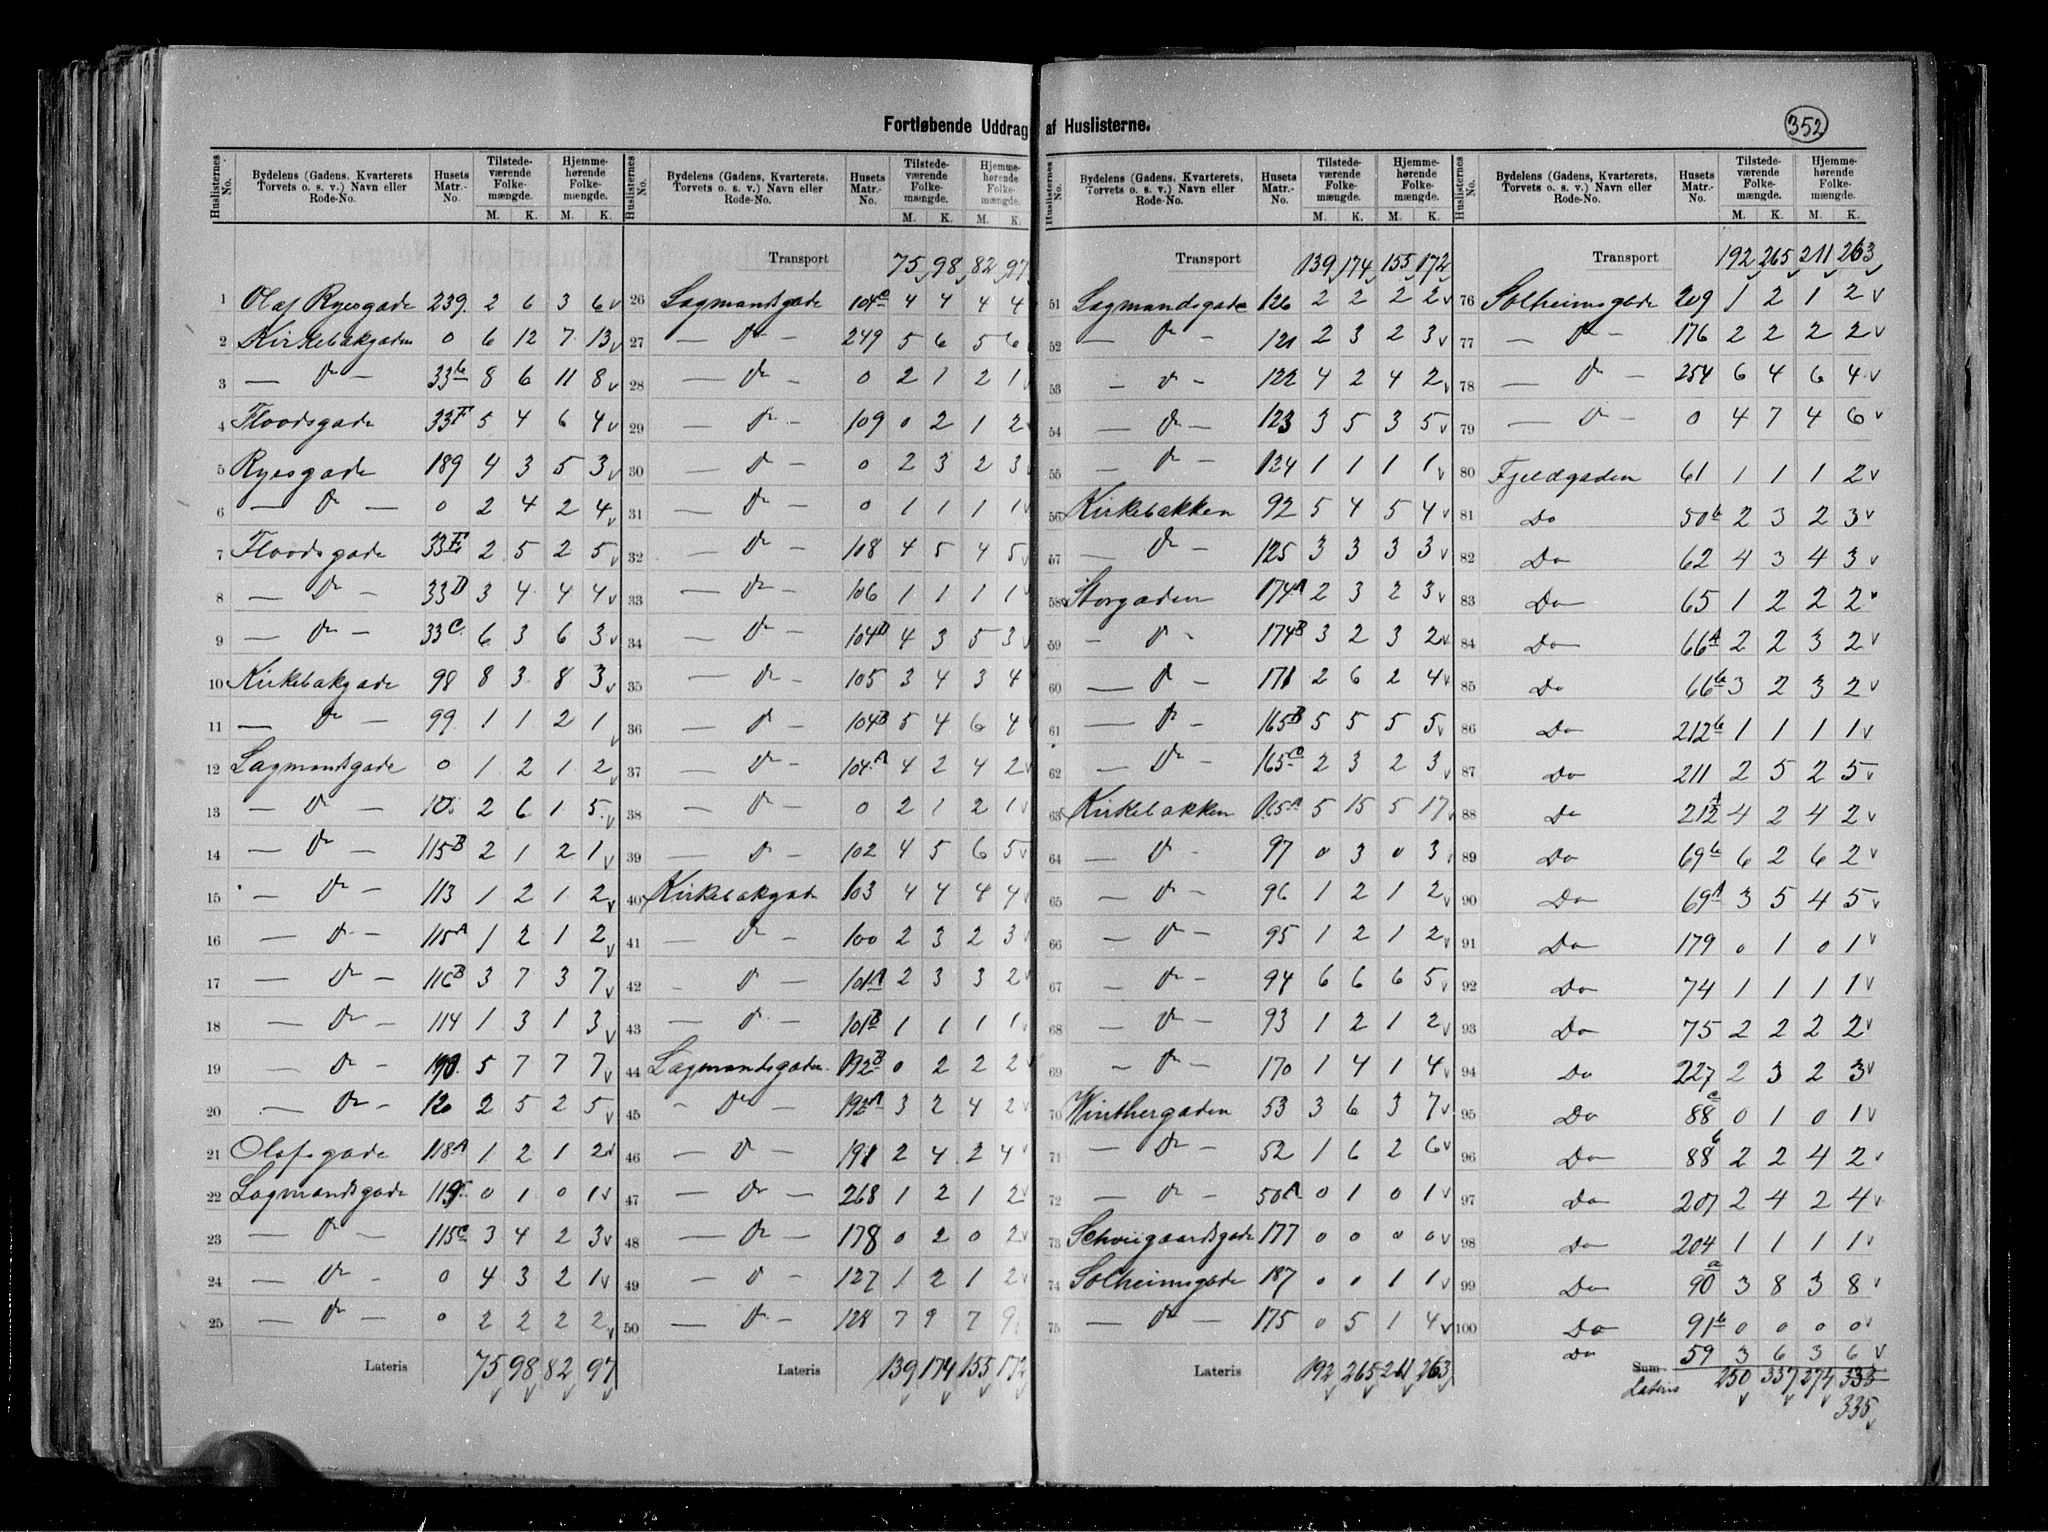 Fortløbende Uddrag af Huslisterne.
352
Huslisternes No. | Bydelens (Gadens, Kvarterets, Torvets o. s. v.) Navn eller Rode-No. | Husets Matr.-No. | Tilstedeværende Folkemængde. M. K. | Hjemmehørende Folkemængde. M. K.
1 Olaf Ryesgade 239. 2 6 3 6
2 Kirkebakgaden 0 6 12 7 13
3 — Do — 33b 8 6 11 8
4 Floodsgade 33F 5 4 6 4
5 Ryesgade 189 4 3 5 3
6 — Do — 0 2 4 2 4
7 Floodsgade 33E 2 5 2 5
8 — Do — 33D 3 4 4 4
9 — Do — 33C 6 3 6 3
10 Kirkebakgade 98 8 3 8 3
11 — Do — 99 1 1 2 1
12 Lagmandsgade 0 1 2 1 2
13 — Do — 2 6 1 5
14 — Do — 115B 2 1 2 1
15 — Do — 113 1 2 1 2
16 — Do — 115A 1 2 1 2
17 — Do — 116B 3 7 3 7
18 — Do — 114 1 3 1 3
19 — Do — 190 5 7 7 7
20 — Do — 120 2 5 2 5
21 Olafsgade 118A 1 2 1 2
22 Lagmandsgade 119 0 1 0 1
23 — Do — 115C 3 4 2 3
24 — Do — 0 4 3 2 1
25 — Do — 0 2 2 2 2
Lateris 75 98 82 97
Transport 75 98 82 97
26 Lagmandsgade 104C 4 4 4 4
27 — Do — 249 5 6 5 6
28 — Do — 0 2 1 2 1
29 — Do — 109 0 2 1 2
30 — Do — 0 2 3 2 3
31 — Do — 0 1 1 1 1
32 — Do — 108 4 5 4 5
33 — Do — 106 1 1 1 1
34 — Do — 104D 4 3 5 3
35 — Do — 105 3 4 3 4
36 — Do — 104B 5 4 6 4
37 — Do — 104A 4 2 4 2
38 — Do — 0 2 1 2 1
39 — Do — 102 4 5 6 5
40 Kirkebakgad 103 4 4 4 4
41 — Do — 100 2 3 2 3
42 — Do — 101A 2 3 3 2
43 — Do — 101B 1 1 1 1
44 Lagmandsgaden 192B 0 2 2 2
45 — Do — 192A 3 2 4 2
46 — Do — 191 2 4 2 4
47 — Do — 268 1 2 1 2
48 — Do — 178 0 2 0 2
49 — Do — 127 1 2 1 2
50 — Do — 128 7 9 7 9
Lateris 139 174 155 172
Transport 139 174 155 172
51 Lagmandsgade 126 2 2 2 2
52 — Do — 121 2 3 2 3
53 — Do — 122 4 2 4 2
54 — Do — 123 3 5 3 5
55 — Do — 124 1 1 1 1
56 Kirkebakken 92 5 4 5 4
57 — Do — 125 3 3 3 3
58 Storgaden 174A 2 3 2 3
59 — Do — 174B 3 2 3 2
60 — Do — 171 2 6 2 4
61 — Do — 165B 5 5 5 5
62 — Do — 165C 2 3 2 3
63 Kirkebakken 165A 5 15 5 17
64 — Do — 97 0 3 0 3
65 — Do — 96 1 2 1 2
66 — Do — 95 1 2 1 2
67 — Do — 94 6 6 6 5
68 — Do — 93 1 2 1 2
69 — Do — 170 1 4 1 4
70 Winthergaden 53 3 6 3 7
71 — Do — 52 1 6 2 6
72 — Do — 50A 0 1 0 1
73 Schwiigaardsgade 177 0 0 0 0
74 Solheimsgade 187 0 0 1 1
75 — Do — 175 0 5 1 4
Lateris 192 265 211 263
Transport 192 265 211 263
76 Solheimsgade 209 1 2 1 2
77 — Do — 176 2 2 2 2
78 — Do — 254 6 4 6 4
79 — Do — 0 4 7 4 6
80 Fjeldgaden 61 1 1 1 2
81 Do 50b 2 3 2 3
82 Do 62 4 3 4 3
83 Do 65 1 2 2 2
84 Do 66A 2 2 3 2
85 Do 66b 3 2 3 2
86 Do 212b 1 1 1 1
87 Do 211 2 5 2 5
88 Do 212A 4 2 4 2
89 Do 69b 6 2 6 2
90 Do 69A 3 5 4 5
91 Do 179 0 1 0 1
92 Do 74 1 1 1 1
93 Do 75 2 2 2 2
94 Do 227 2 3 2 3
95 Do 88c 0 1 0 1
96 Do 88b 2 2 4 2
97 Do 207 2 4 2 4
98 Do 204 1 1 1 1
99 Do 90a 3 8 3 8
100 Do 91b 0 0 0 0
Do 59 3 6 3 6
Sum Lateris 250 337 274 333
335